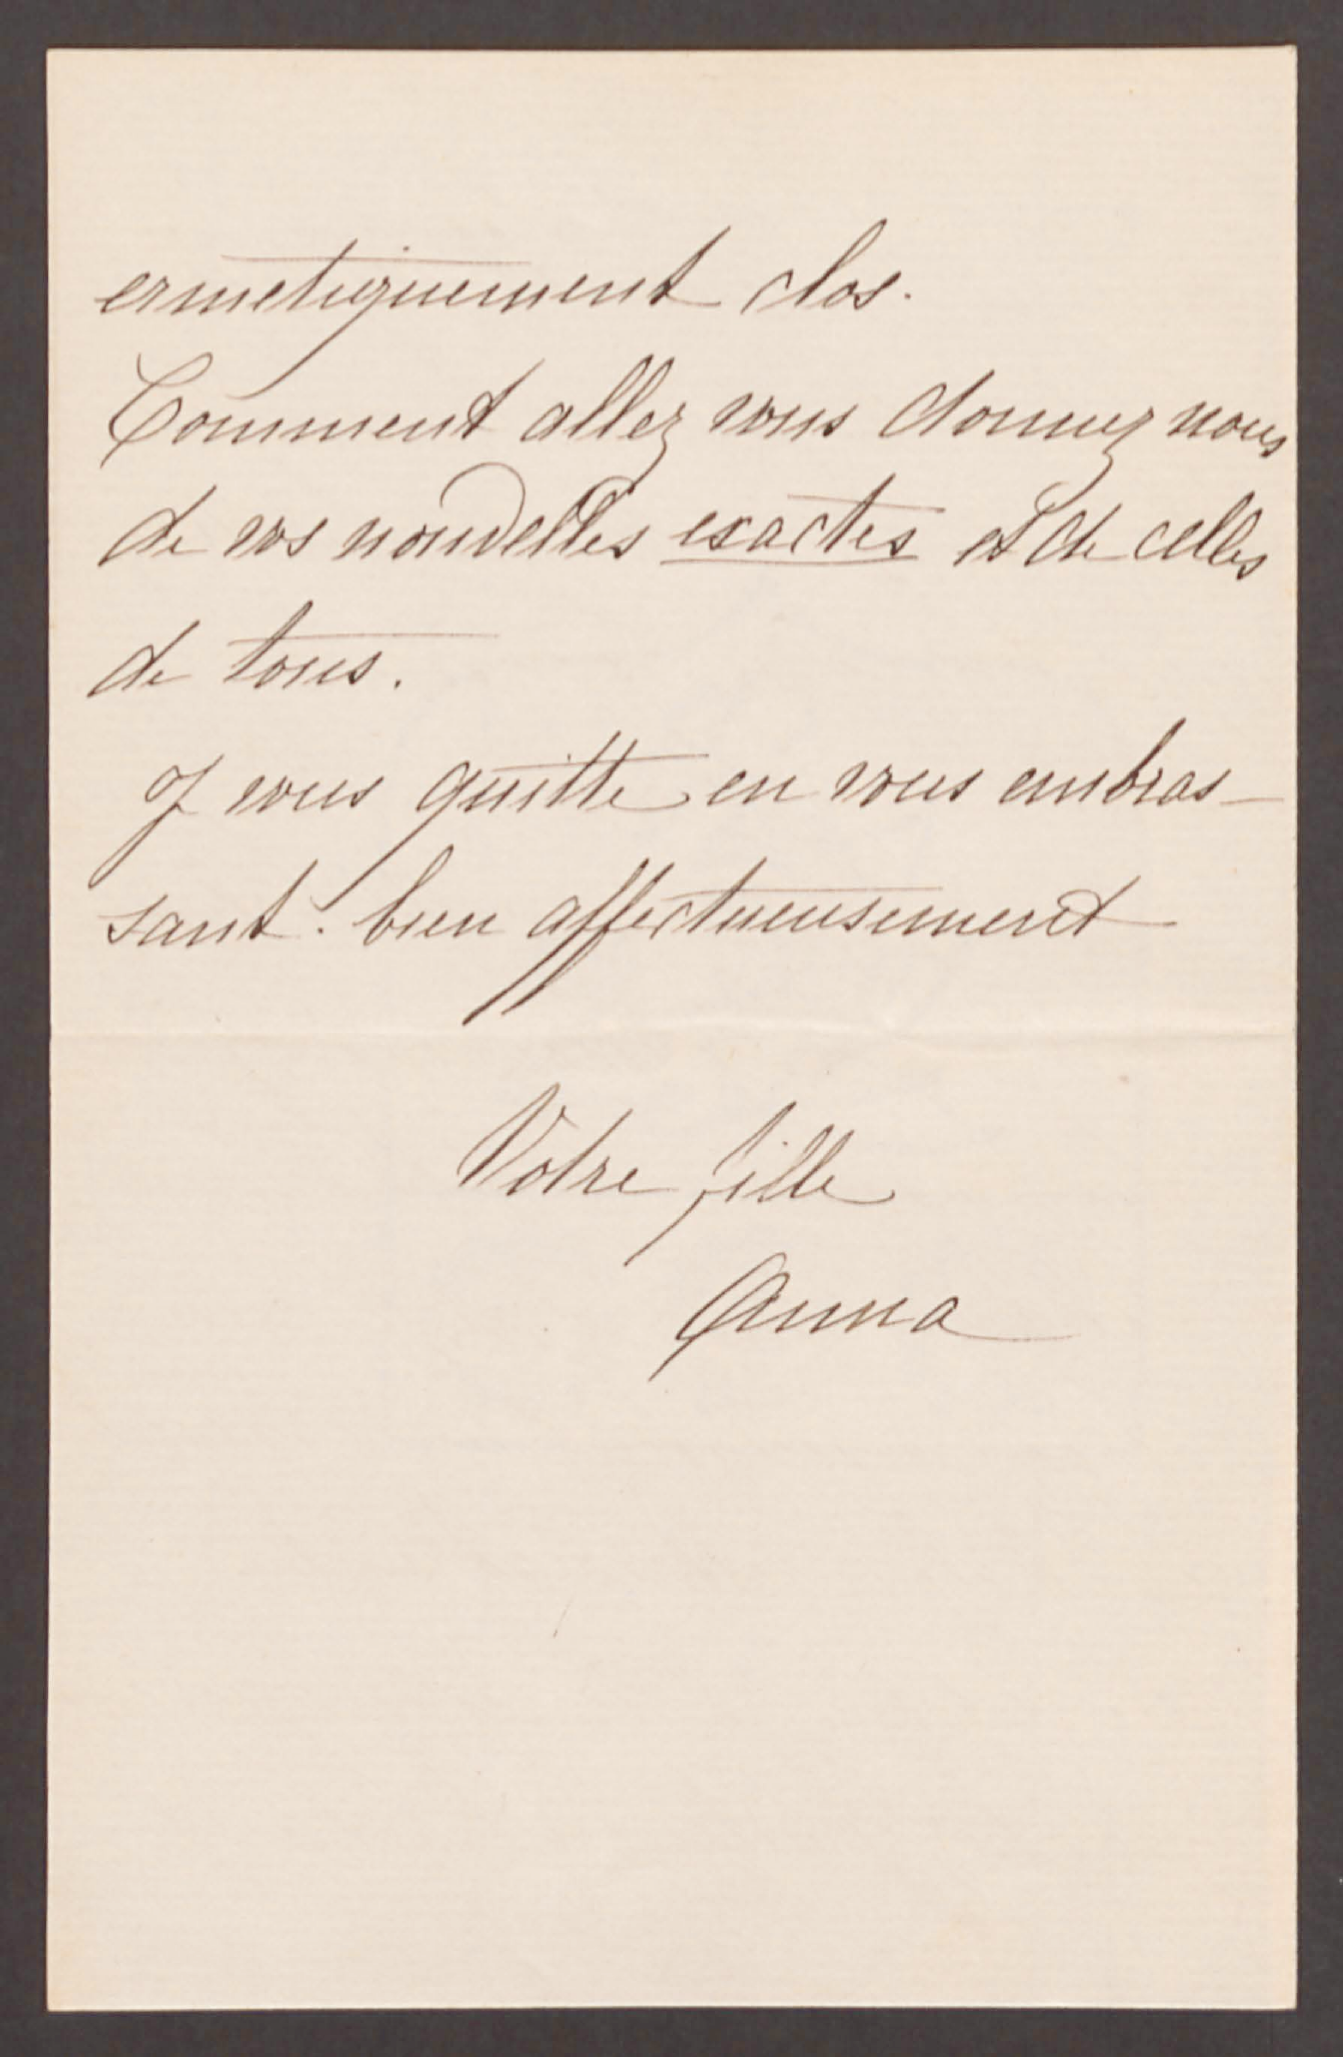 ermetiquement clos.
Comment allez vous donnez nous
de vos nouvelles exactes et de celles
de tous.
J vous quitte en vous embras-
sant. bien affectueusement
Votre fille
Anna